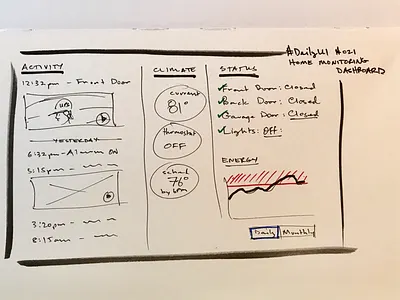 #DailyUI #021
HOME MONITORING
DASHBOARD
ACTIVITY
12:32pm - Front Door
YESTERDAY
6:32pm - Alarm ON
5:15pm -
3:20pm -
8:15am -
CLIMATE
current
81°
thermostat
OFF
sched
76°
by 6pm
STATUS
Front Door: Closed
Back Door: Closed
Garage Door: Closed
Lights: Off:
ENERGY
Daily Monthly